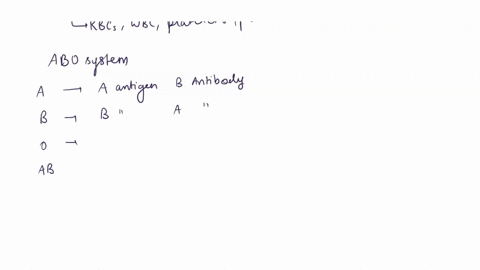 ↳RBCs, WBC,
ABO system
A → A antigen B Antibody
B → B " A "
O →
AB